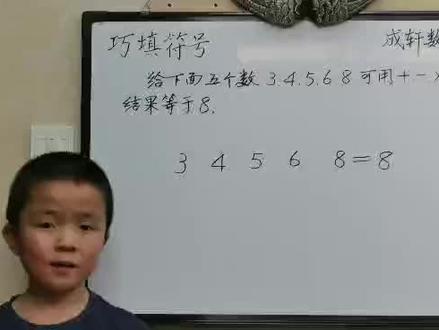 巧填符号
成轩数
给下面五个数 3.4.5.6 8 可用 + - ×
结果等于8.
3 4 5 6 8 = 8